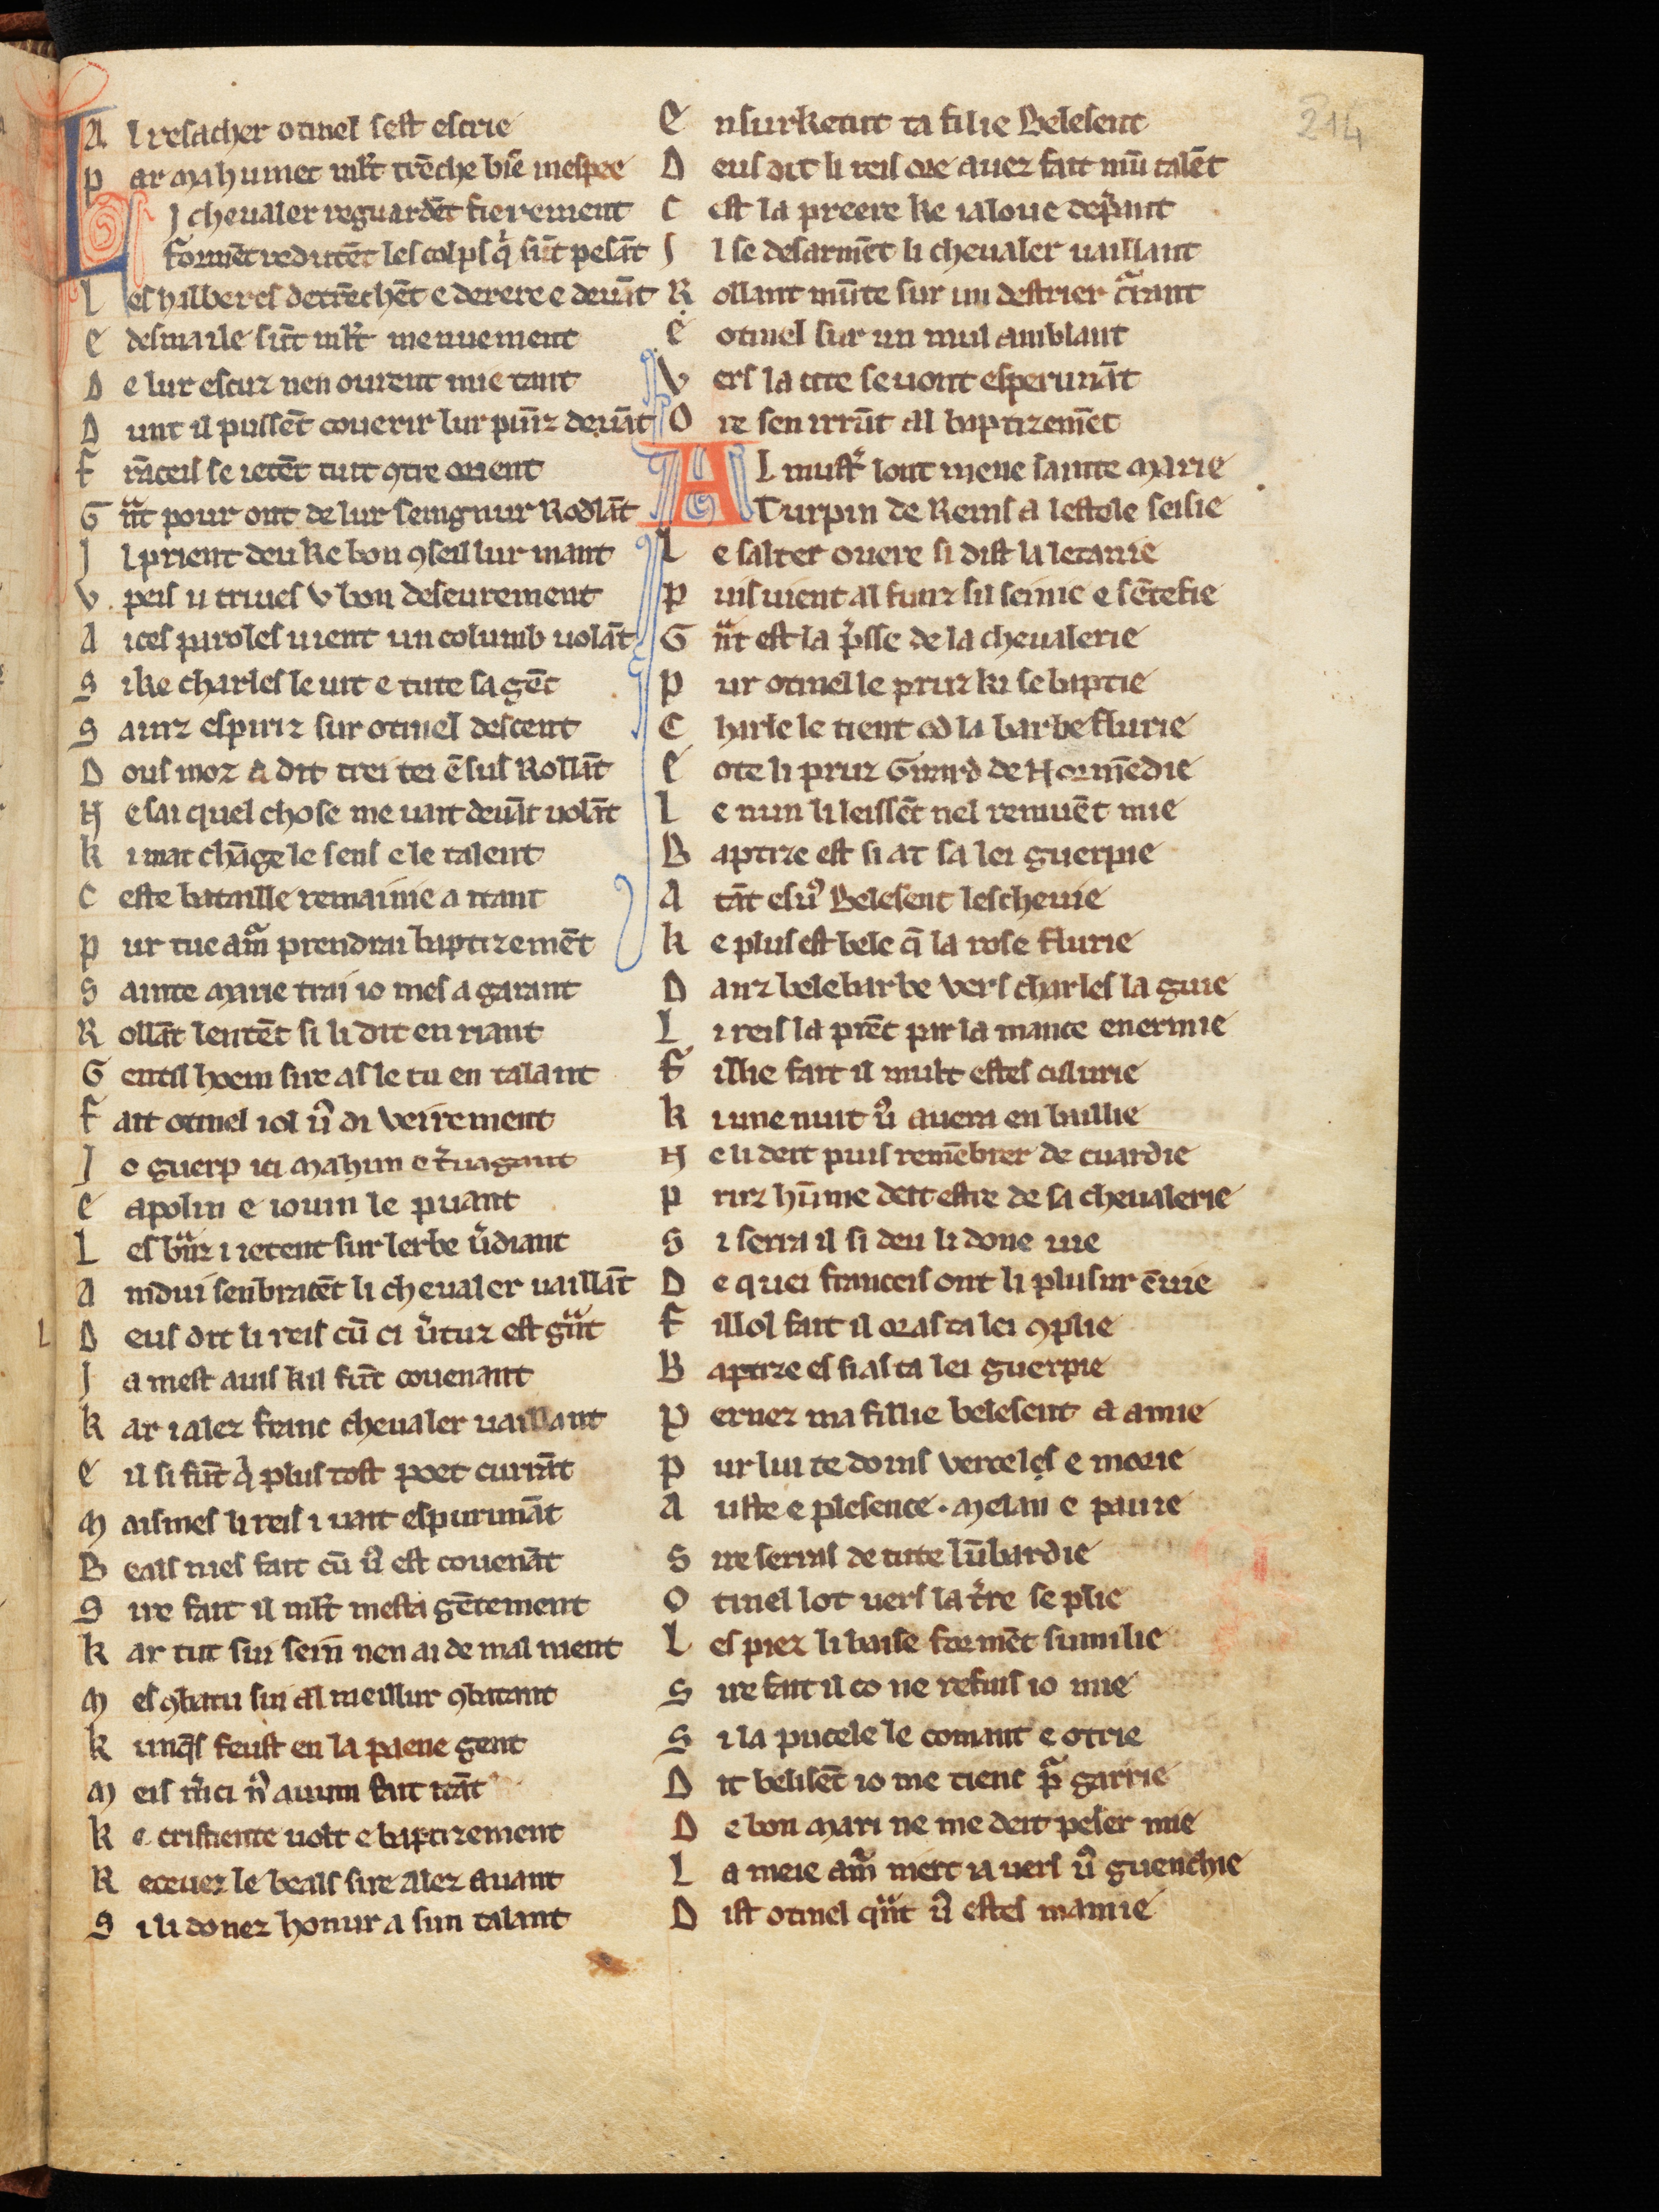 214
A l resacher otinel sest escrie
P ar mahumet mlt trẽche biẽ mespee
L I cheualer reguardẽt fierement
formẽt redutẽt les colps q̉ sũt pesãt
L es halbercs detrẽchẽt e derere e deuãt
E desmaile sũt mlt menuement
D e lur escuz nen ourent mie tant
D unt il pussẽt couerir lur puĩz deuãt
F rãceis se ietẽt tuit ꝯtre orient
G ᵃnt pour ont de lur seingnur Rodlãt
I l prient deu ke bon ꝯseil lur mant
V peis u triues v bon deseurement
A ices paroles uient un columb uolãt
S i ke charles le uit e tute sa gẽt
S ainz espiriz sur otinel descent
D ous moz a dit trei tei ẽsus Rollãt
N e sai quel chose me uait deuãt uolãt
K i mat chãge le sens e le talent
C este bataille remainie a itant
P ur tue amᵃ prendrai baptizemẽt
S ainte marie trai io mes a garant
R ollãt lentẽt si li dit en riant
G entil hoem sire as le tu en talant
F ait otinel iol u᷒ di veirement
I o guerp ici mahun e t̉uagant
E apolin e iouin le puant
L es bᵃnz i ietent sur lerbe ủdiant
A mdui senbracẽt li cheualer uaillãt
D eus dit li reis cũ ci ủtuz est gᵃnt
I a mest auis kil fũt couenant
K ar i alez franc cheualer uaillant
E il si fũt q̉ plus tost poet curãt
M aismes li reis i uait espurunãt
B eals nies fait cũ u᷒ est couenãt
S ire fait il mlt mesta gẽtement
K ar tut sui sein nen ai de mal nient
M es ꝯbatu sui al meillur ꝯbatant
K unq̃s feust en la paene gent
M eis m̉ci n᷒ auum fait itãt
K e cristiente uolt e baptizement
R eceuez le beals sire alez auant
S i li donez honur a sun talant
E nsurketut ta filie Belesent
D eus dit li reis ore auez fait mũ talẽt
C est la preere ke ialoue dep̉ant
I l se desarmẽt li cheualer uaillant
R ollant mũte sur un destrier cᵃiant
E otinel sur un mul amblant
V ers la cite se uont esperunãt
O re sen irrũt al baptizemẽt
A L must̉ lont mene sainte marie
Turpin de Reins a lestole seisie
L e salter ouere si dist la letanie
P uis uient al funz sil seinie e sẽtefie
G ᵃnt est la p̉sse de la cheualerie
P ur otinel le pruz ki se baptie
C harle le tient od la barbe flurie
E ote li pruz Girard de Normẽdie
L e nun li leissẽt nel remuẽt mie
B aptize est si at sa lei guerpie
A tãt esu᷒ Belesent leschevie
K e plus est bele q̃ la rose flurie
D anz belebarbe vers charles la guie
L i reis la prẽt par la mance enermie
F illie fait il mult estes culurie
K i une nuit u᷒ auera en baillie
N e li deit puis remẽbrer de cuardie
P ruz hũme deit estre de sa cheualerie
S i serra il si deu li done uie
D e quei franceis ont li plusur ẽuie
F illol fait il oras ta lei ꝯplie
B aptize es si as ta lei guerpie
P ernez ma fillie belesent a amie
P ur lui te doins verceles e morie
A uste e plesence. melan e pauie
S ire serras de tute lũbardie
O tinel lot uers la t̉re se plie
L es piez li baise formẽt sumilie
S ire fait il co ne refus io mie
S i la pucele le comant e otrie
D it belisẽt io me tienc pᵃ garrie
D e bon mari ne me deit peser mie
L a meie amᵃ niert ia uers u᷒ guenchie
D ist otinel qᵃnt u᷒ estes mamie